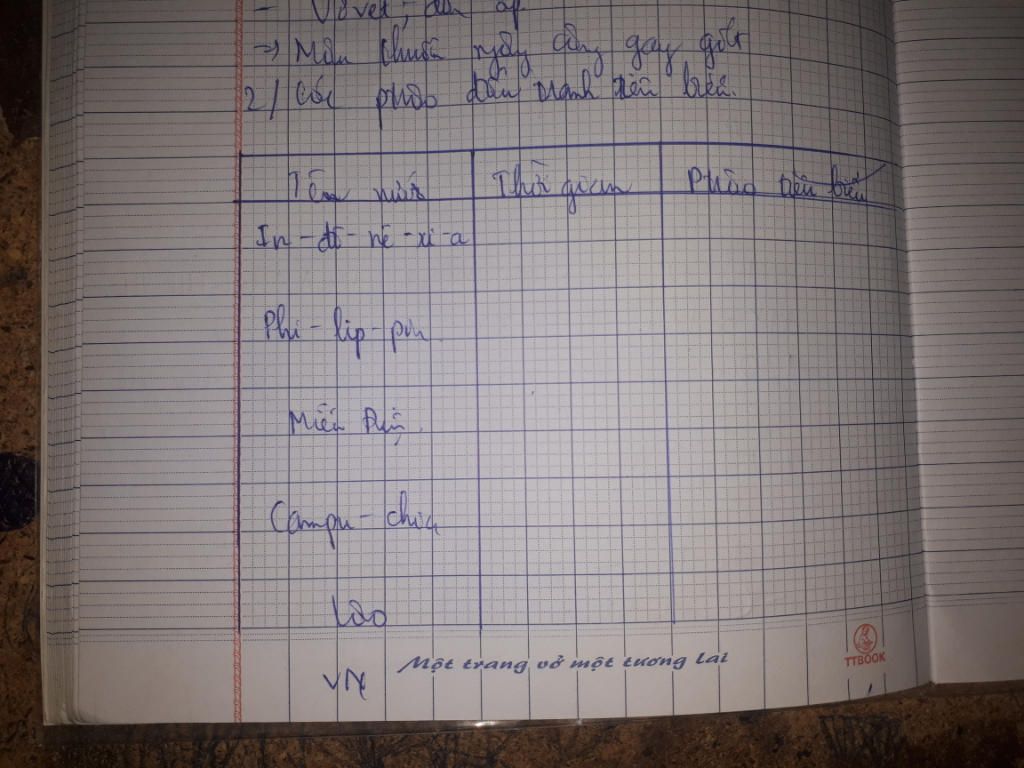 - Vơ vét, đàn áp
=> Mâu thuẫn ngày càng gay gắt
2/ Các phào đấu tranh tiêu biểu.
Tên nước Thời gian Phào tiêu biểu
In - đô - nê - xi - a
Phi - lip - pin
Miến Điện
Campu - chia
Lào
Một trang vở một tương lai
TTBOOK
VN